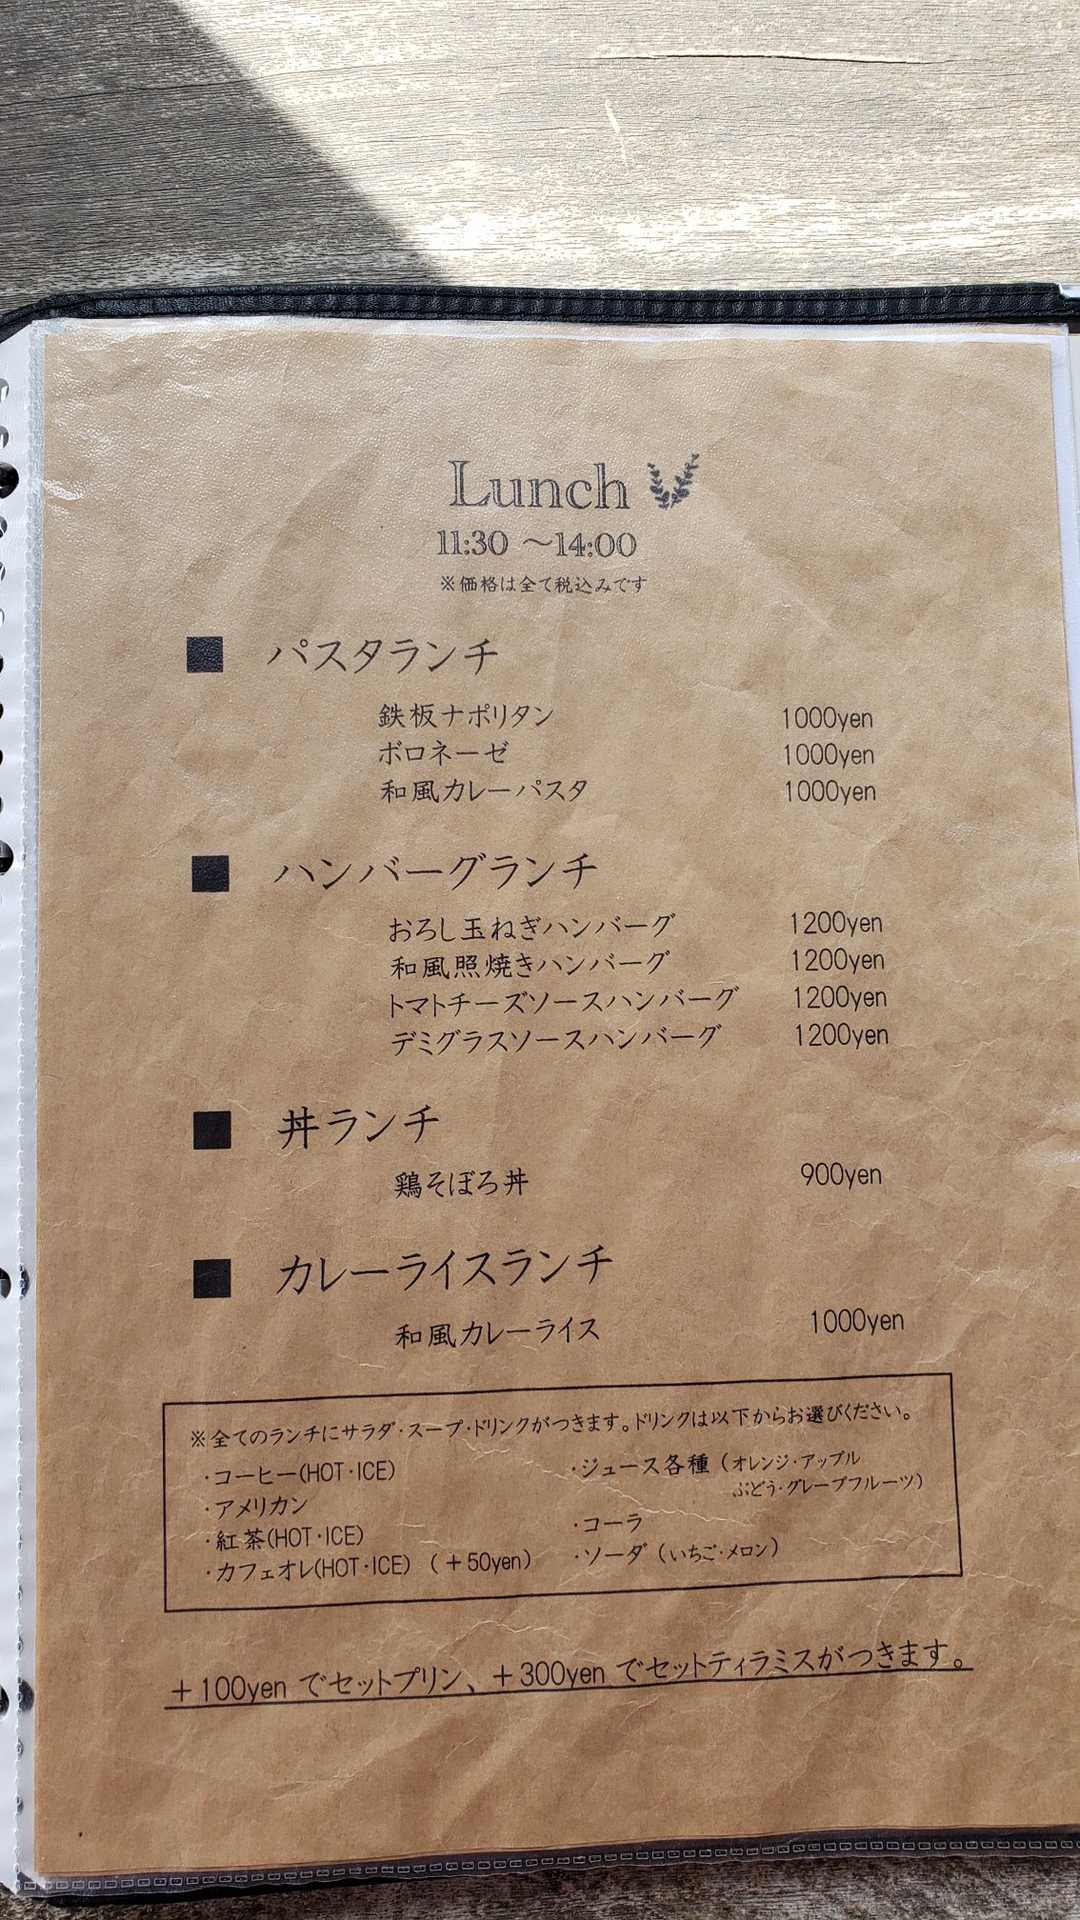 Lunch
11:30 ～14:00
※価格は全て税込みです
■ パスタランチ
鉄板ナポリタン 1000yen
ボロネーゼ 1000yen
和風カレーパスタ 1000yen
■ ハンバーグランチ
おろし玉ねぎハンバーグ 1200yen
和風照焼きハンバーグ 1200yen
トマトチーズソースハンバーグ 1200yen
デミグラスソースハンバーグ 1200yen
■ 丼ランチ
鶏そぼろ丼 900yen
■ カレーライスランチ
和風カレーライス 1000yen
※全てのランチにサラダ・スープ・ドリンクがつきます。ドリンクは以下からお選びください。
・コーヒー(HOT・ICE)
・アメリカン
・紅茶(HOT・ICE)
・カフェオレ(HOT・ICE) (＋50yen)
・ジュース各種 (オレンジ・アップル
ぶどう・グレープフルーツ)
・コーラ
・ソーダ (いちご・メロン)
＋100yen でセットプリン、＋300yen でセットティラミスがつきます。